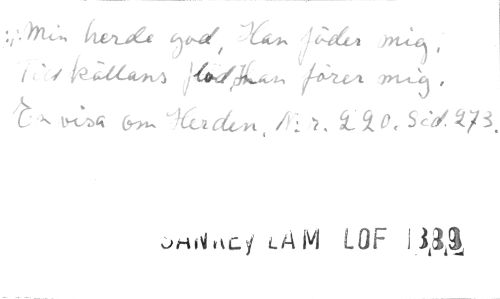 :,: Min herde god, Han föder mig;
Till källans flöd Han förer mig.
En visa om Herden. N:r. 220. Sid. 273.
SANKEY LAM LOF 1889